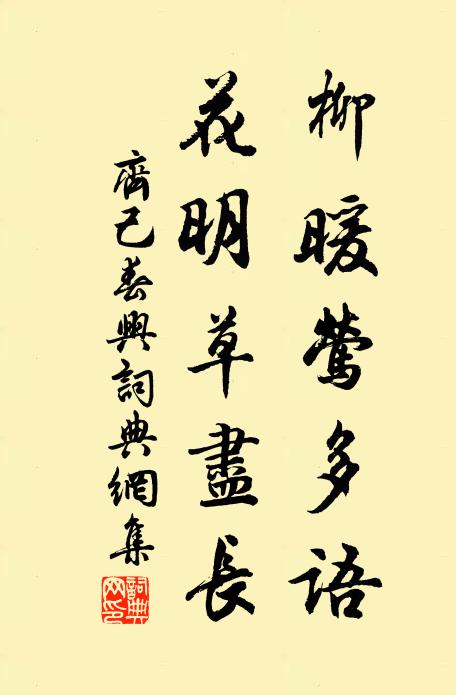 柳暖鶯多語
花明草盡長
齊己春興詞典網集
詞典網印